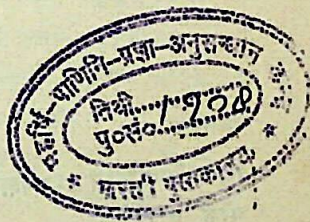 महर्षि-पाणिनि-प्रज्ञा-अनुसन्धान
तिथी..............
पु०सं०..1908
* भारती पुस्तकालय *